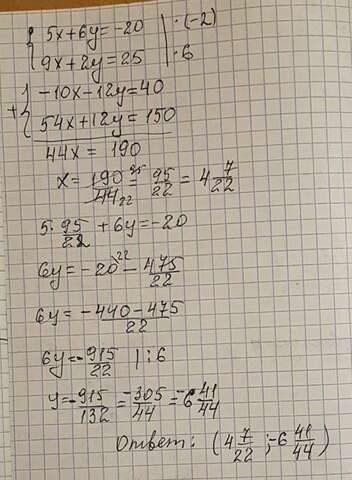 { 5x+6y=-20 | ·(-2)
9x+2y=25 | ·6
+ { -10x-12y=40
54x+12y=150
44x = 190
x = 190/44 = 95/22 = 4 7/22
5·95/22 + 6y = -20
6y = -20 - 475/22
6y = -440-475/22
6y = -915/22 | :6
y = -915/132 = -305/44 = -6 41/44
Ответ: (4 7/22 ; -6 41/44)